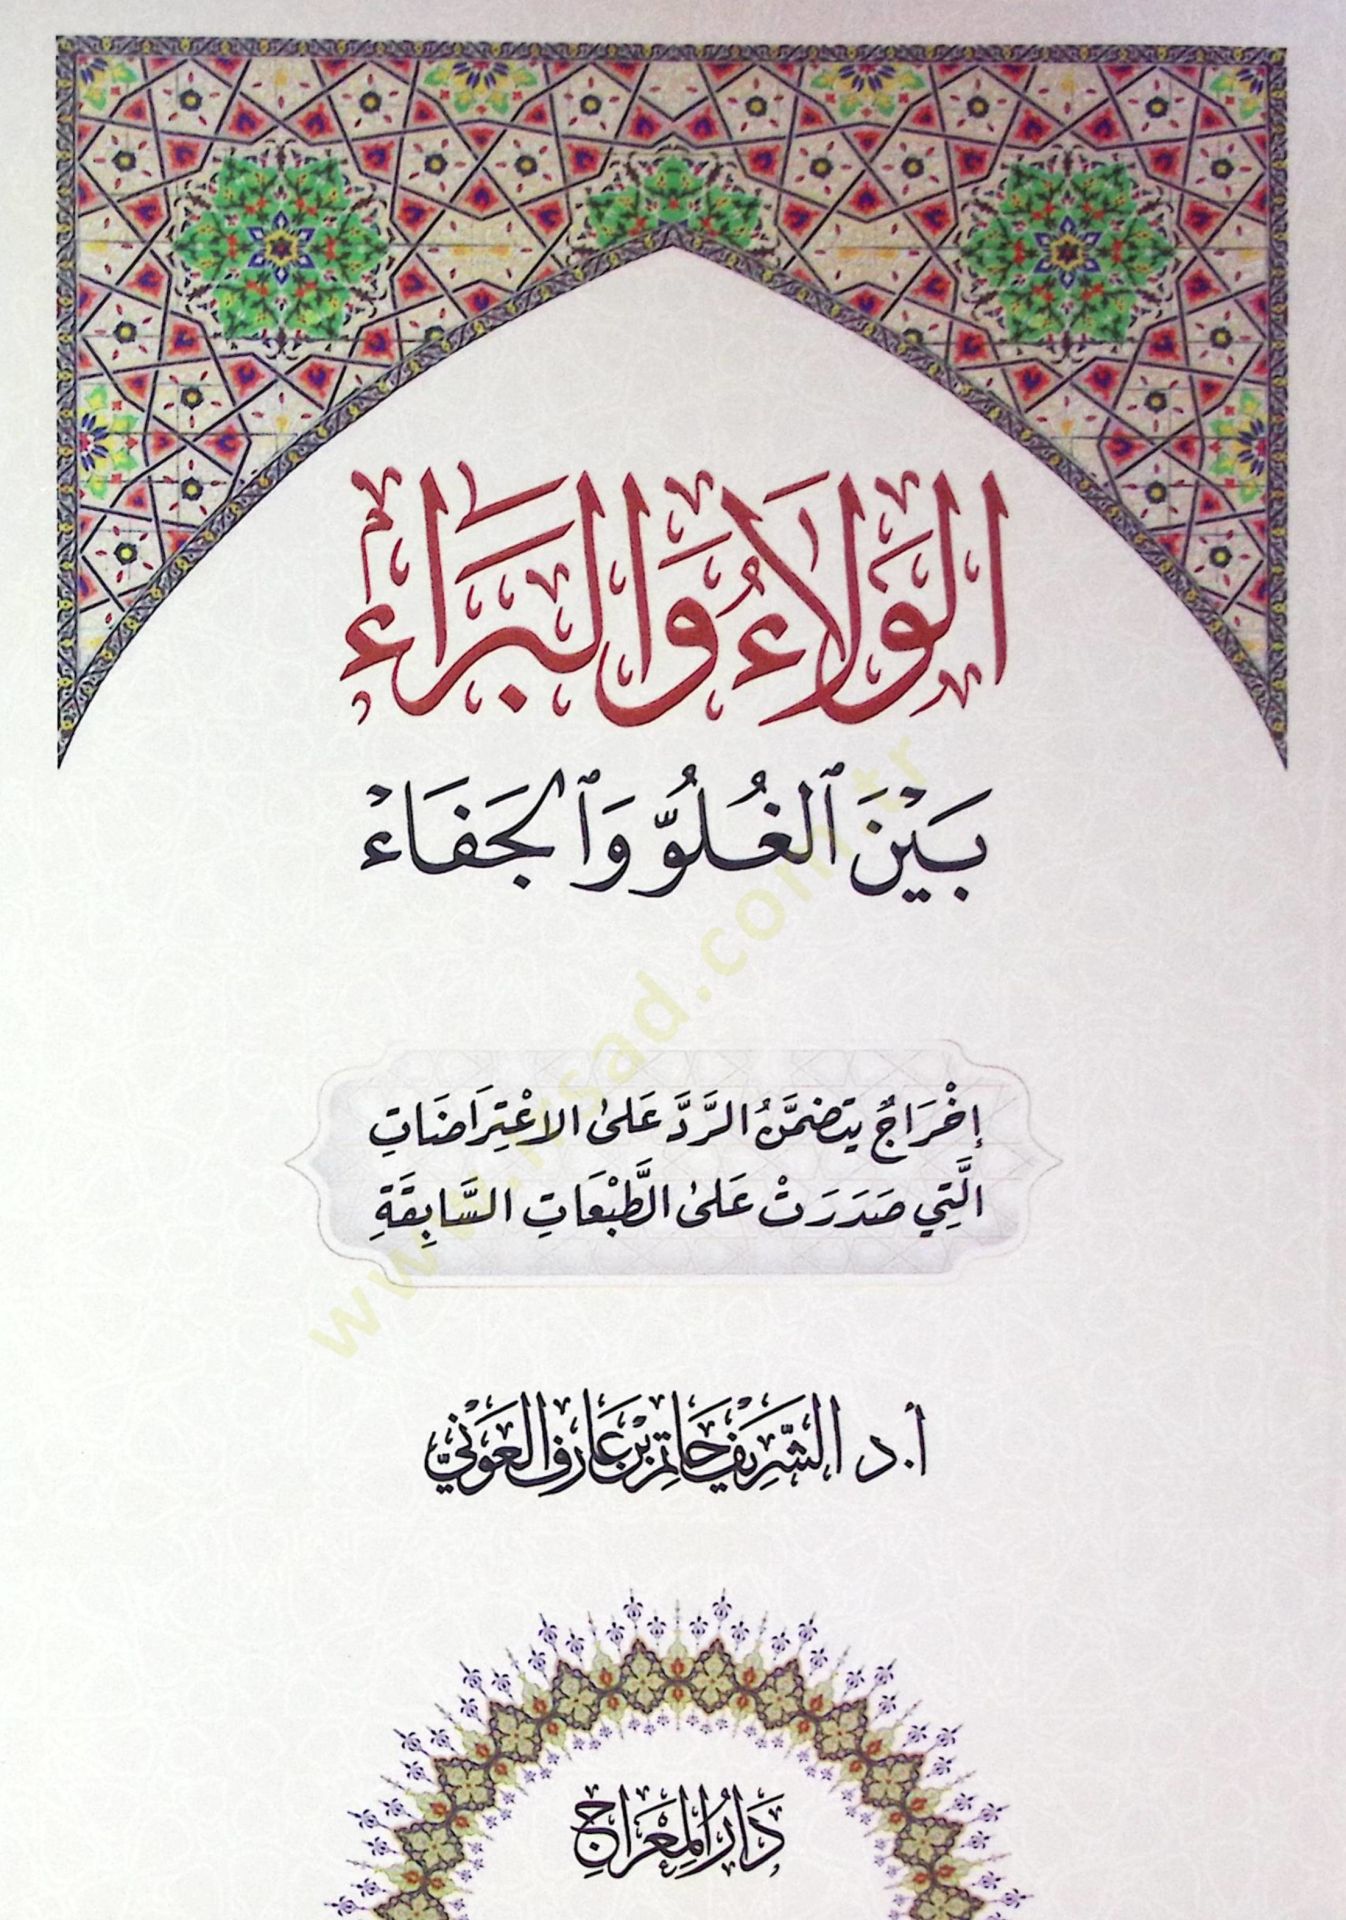 الوَلَاءُ وَالبَرَاءُ
بَيْنَ ٱلْغُلُوِّ وَٱلْجَفَاءِ
إِخْرَاجٌ يتضمَّنُ الرَّدَّ عَلَى الاعْتِرَاضَاتِ
الَّتِي صَدَرَتْ عَلَى الطَّبْعَاتِ السَّابِقَةِ
أ.د الشَّرِيف حَاتِم بْن عَارِف العَوْنِيّ
دَارُ المِعْرَاجِ
www.irsad.com.tr